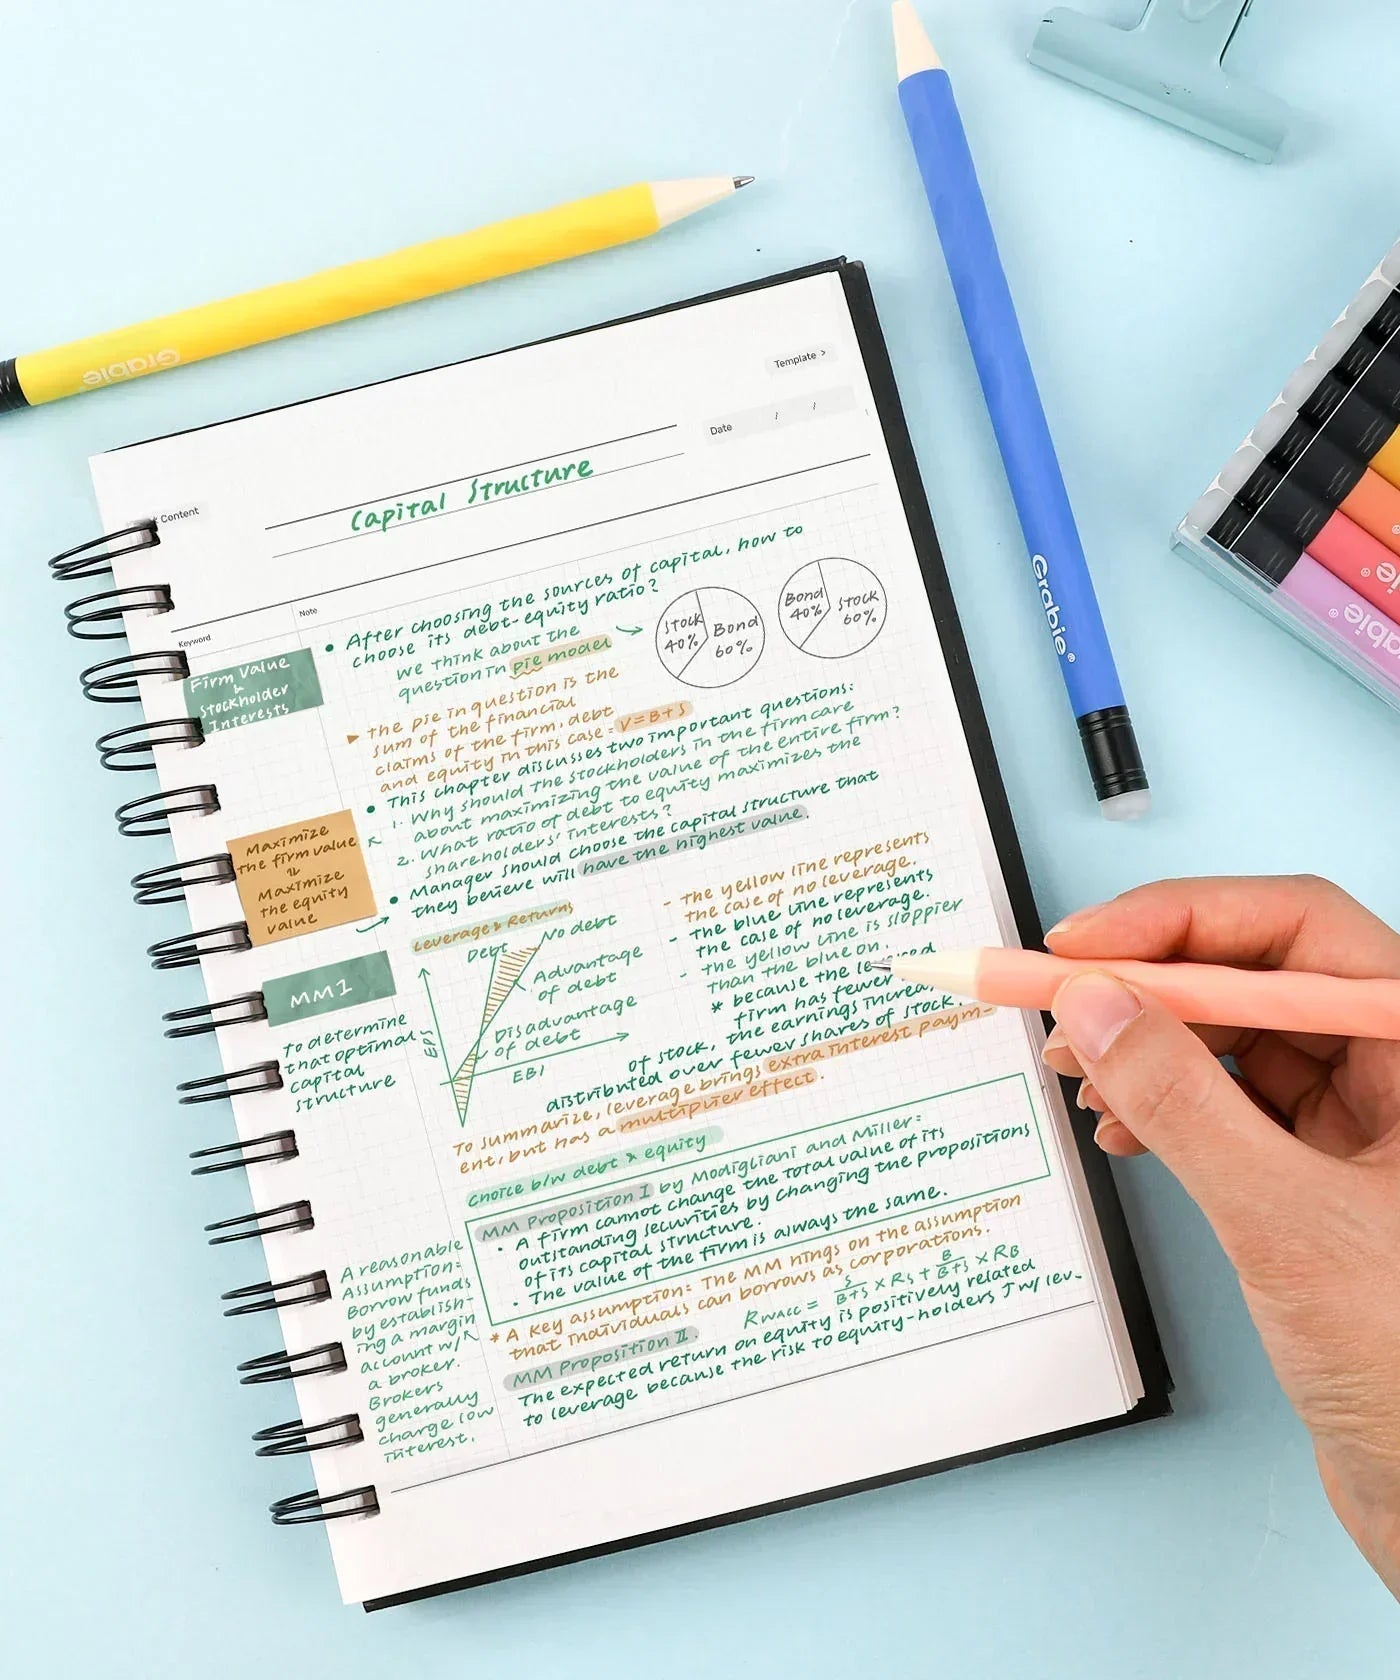 Grabie
Grabie®
Template >
Date / /
Content
Capital Structure
Keyword
Note
Firm Value
&
Stockholder
Interests
• After choosing the sources of capital, how to
choose its debt-equity ratio?
we think about the
question in pie model
Stock
40%
Bond
60%
Bond
40%
Stock
60%
▸ The pie in question is the
sum of the financial
claims of the firm, debt
and equity in this case: V=B+S
• This chapter discusses two important questions:
1. Why should the stockholders in the firm care
about maximizing the value of the entire firm?
2. What ratio of debt to equity maximizes the
shareholders' interests?
• Manager should choose the capital structure that
they believe will have the highest value.
Maximize
the firm value
Maximize
the equity
value
Leverage & Returns
Debt
No debt
Advantage
of debt
Disadvantage
of debt
EPS
EBI
- the yellow line represents
the case of no leverage.
- the blue line represents
the case of no leverage.
- the yellow line is sloppier
than the blue on.
* because the
firm has fewer
of stock, the earnings
distributed over fewer shares of stock.
To summarize, leverage brings extra interest paym-
ent, but has a multiplier effect.
MM1
To determine
that optimal
capital
structure
Choice b/w debt & equity
MM Proposition I by Modigliani and Miller:
• A firm cannot change the total value of its
outstanding securities by changing the propositions
of its capital structure.
• The value of the firm is always the same.
* A key assumption: The MM hings on the assumption
that individuals can borrows as corporations.
RWACC = S/B+S × RS + B/B+S × RB
MM Proposition II.
The expected return on equity is positively related
to leverage because the risk to equity-holders ↑ w/ lev-
A reasonable
Assumption:
Borrow funds
by establish-
ing a margin
account w/
a broker.
Brokers
generally
charge low
interest.